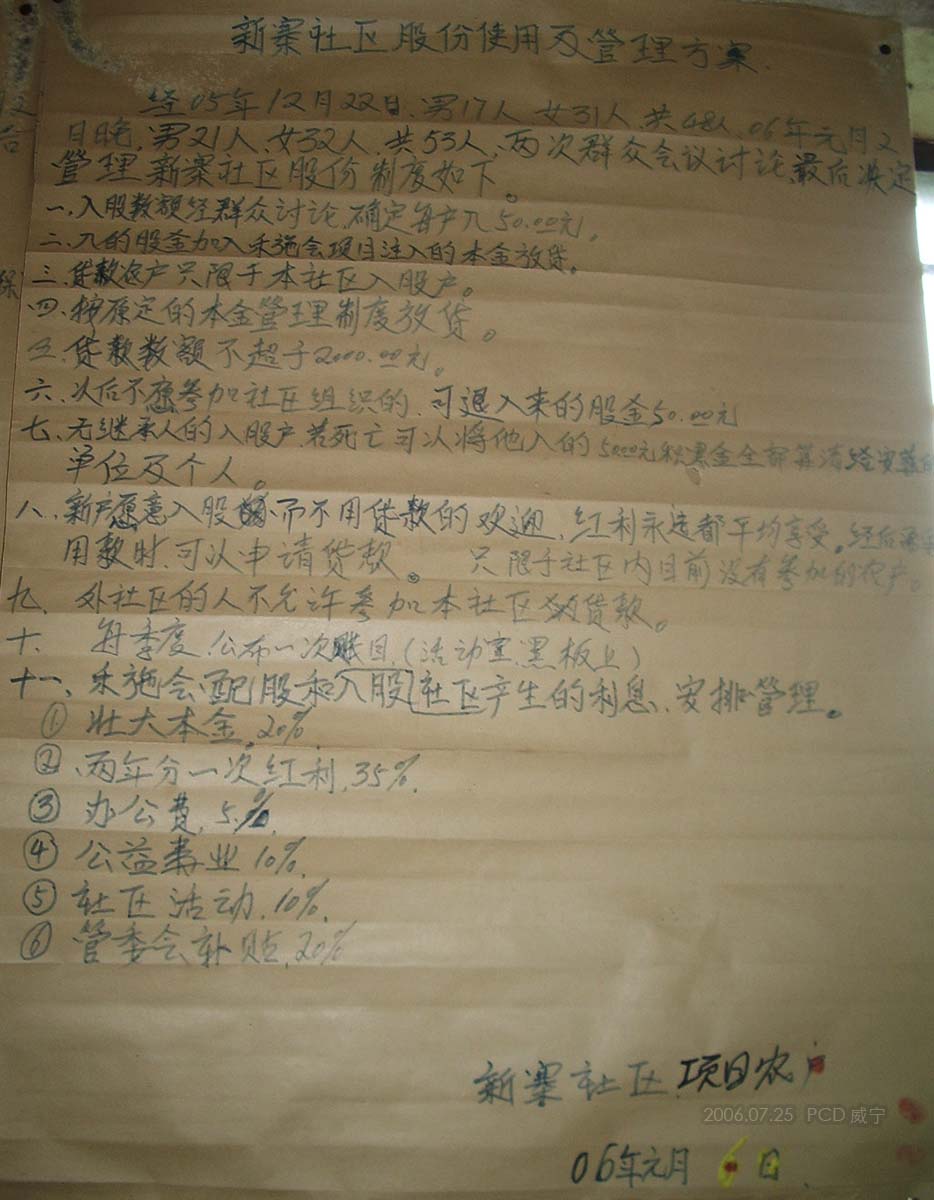 新寨社区股份使用及管理方案.
经05年12月22日.男17人.女31人.共48人.06年元月2
日晚,男21人.女32人.共53人,两次群众会议讨论,最后决定
管理新寨社区股份制度如下。
一.入股数额经群众讨论,确定每户入50.00元。
二.入的股金加入禾施会项目注入的本金放贷。
三.贷款农户只限于本社区入股户。
四.按原定的本金管理制度放贷。
五.贷款数额不超于2000.00元。
六.以后不愿参加社区组织的,可退入来的股金50.00元
七.无继承人的入股户,若死亡可以将他入的50.00元积累金全部算清给安葬的
单位及个人。
八.新户愿意入股而不用贷款的欢迎,红利永远都平均享受。经后
用款时,可以申请贷款。 只限于社区内目前没有参加的农户。
九、外社区的人不允许参加本社区贷款。
十. 每季度.公布一次账目.(活动室.黑板上)
十一、禾施会配股和入股社区产生的利息、安排管理。
① 壮大本金,20%.
②、两年分一次红利,35%.
③ 办公费,5.%.
④ 公益事业10%.
⑤ 社区活动.10%.
⑥ 管委会补贴,20%
新寨社区项目农户
2006.07.25 PCD 威宁
06年元月6日.